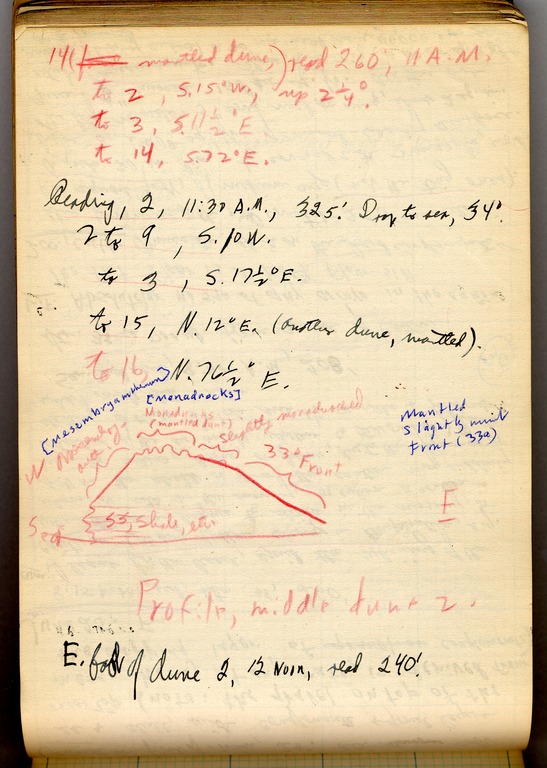 14 ( mantled dune,) read 260', 11 A.M.
to 2, S.15°W., up 2¼°.
to 3, S.11½°E
to 14, S.72°E.
Reading, 2, 11:30 A.M., 325'. Drop to sea, 34°.
2 to 9, S.10W.
to 3, S.17½°E.
to 15, N.12°E. (another dune, mantled).
to 16, N.76½°E.
[Mesembryanthemum]
[monadnocks]
Monadnocks
(mantled dune)
slightly monadnocked
Mantled
Slightly
Front (33°)
W
33° Front
E
Sea
SS, Shale, etc.
Profile, middle dune 2.
E. foot of dune 2, 12 Noon, read 240'.